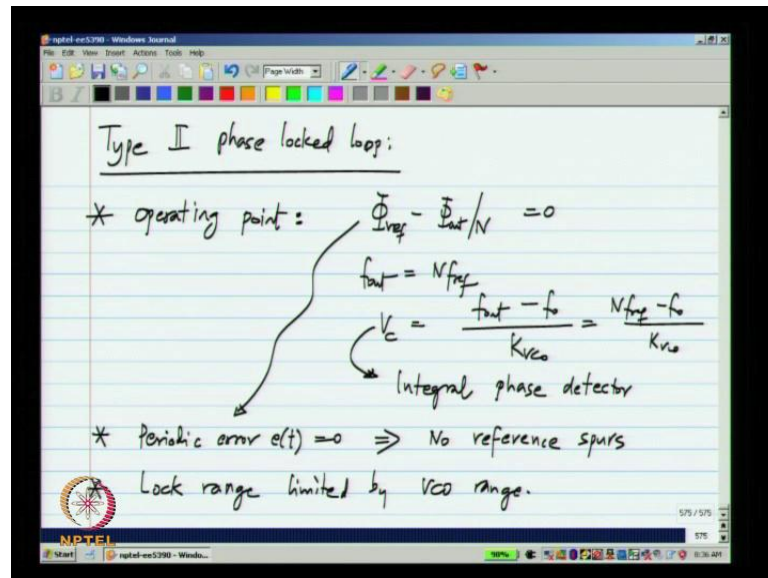 nptel-ee5390 - Windows Journal
File Edit View Insert Actions Tools Help
Page Width
B I
Type II phase locked loop:
* operating point: Φref - Φout/N = 0
fout = Nfref
Vc = (fout - fo)/Kvco = (Nfref - fo)/Kvco
Integral phase detector
* Periodic error e(t) = 0 ⇒ No reference spurs
* Lock range limited by VCO range.
575 / 575
575
NPTEL
Start nptel-ee5390 - Windo... 90% 8:36 AM